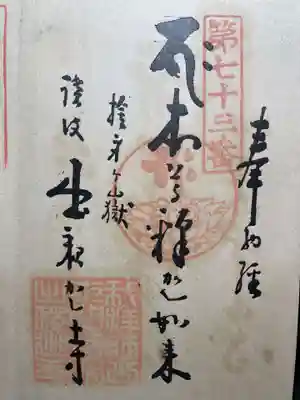 奉納経
第七十三番
本尊釋迦如来
捨身ヶ嶽
讃岐 出釈迦寺